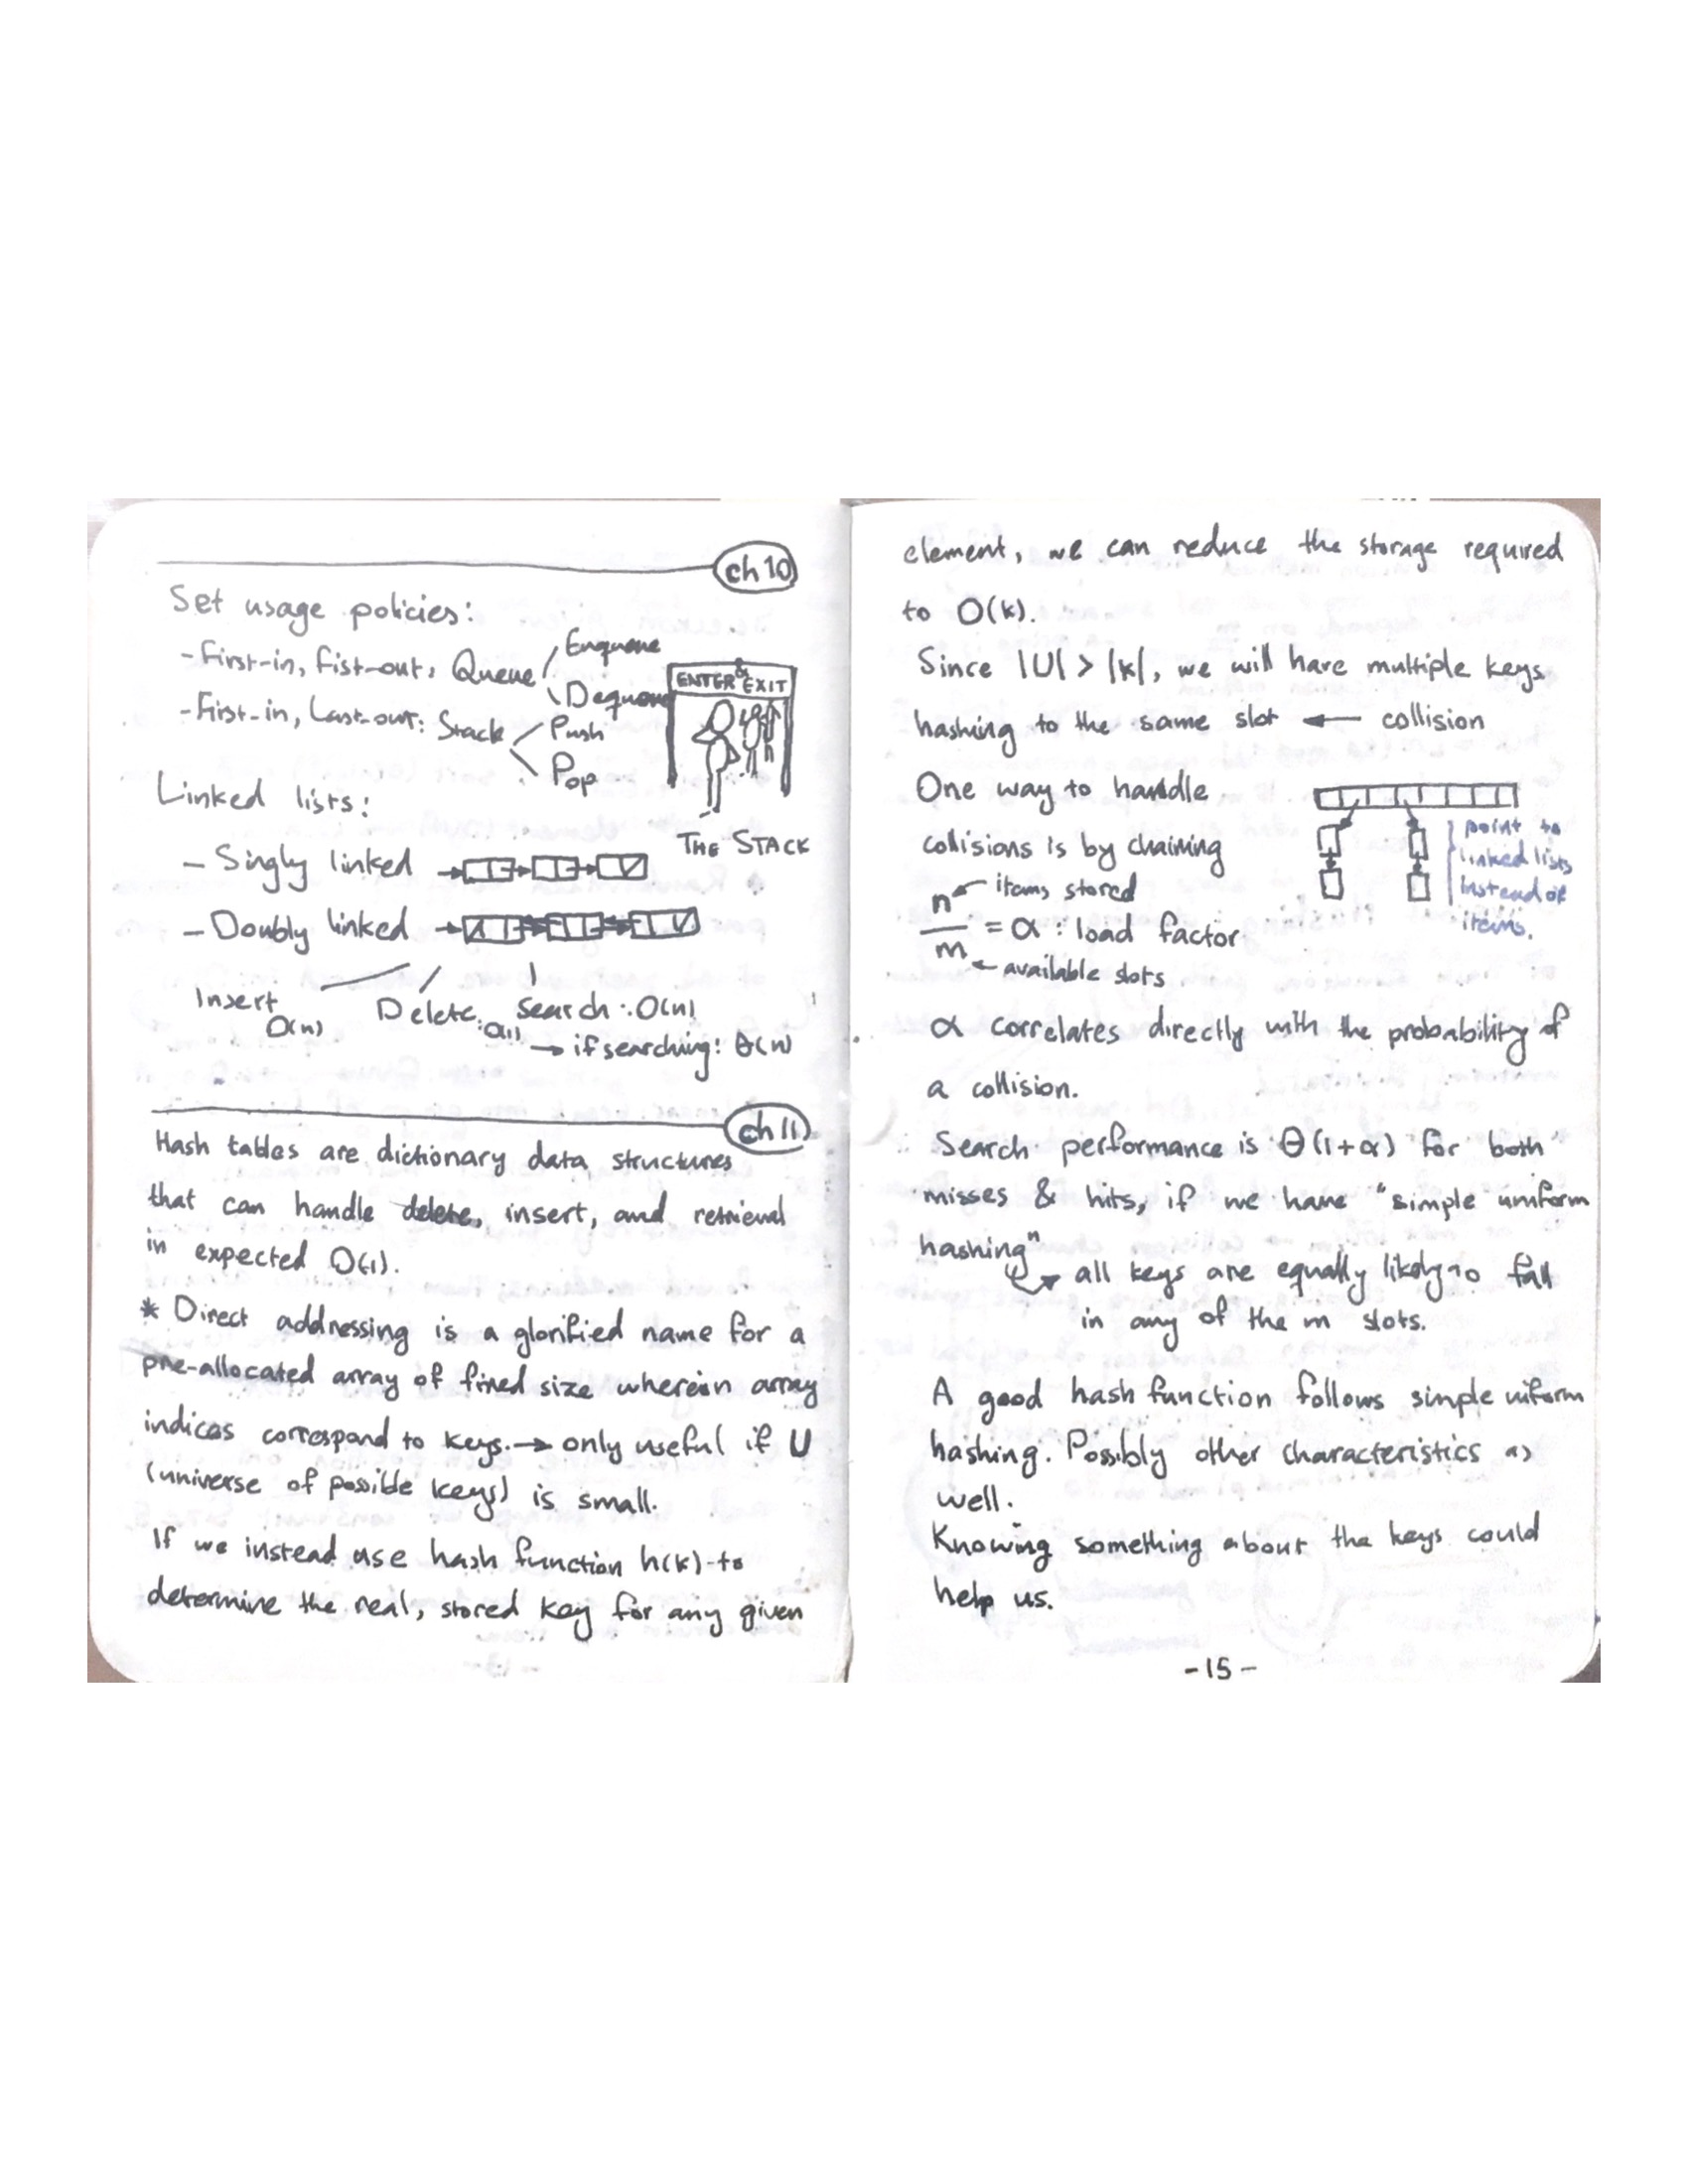 ch 10
Set usage policies:
- First-in, Fist-out, Queue
Enqueue
Dequeue
- First-in, Last-out: Stack
Push
Pop
ENTER & EXIT
THE STACK
Linked lists:
- Singly linked
- Doubly linked
Insert
O(n)
Delete: O(1)
Search: O(n)
→ if searching: Θ(n)
ch 11
Hash tables are dictionary data structures
that can handle delete, insert, and retrieval
in expected O(1).
* Direct addressing is a glorified name for a
pre-allocated array of fixed size wherein array
indices correspond to keys. → only useful if U
(universe of possible keys) is small.
If we instead use hash function h(k) to
determine the real, stored key for any given
element, we can reduce the storage required
to O(k).
Since |U| > |k|, we will have multiple keys
hashing to the same slot ← collision
One way to handle
collisions is by chaining
point to
linked lists
instead of
items.
n ← items stored
— = α : load factor
m ← available slots
α correlates directly with the probability of
a collision.
Search performance is Θ(1+α) for both
misses & hits, if we have "simple uniform
hashing"
→ all keys are equally likely to fall
in any of the m slots.
A good hash function follows simple uiform
hashing. Possibly other characteristics as
well.
Knowing something about the keys could
help us.
-15-